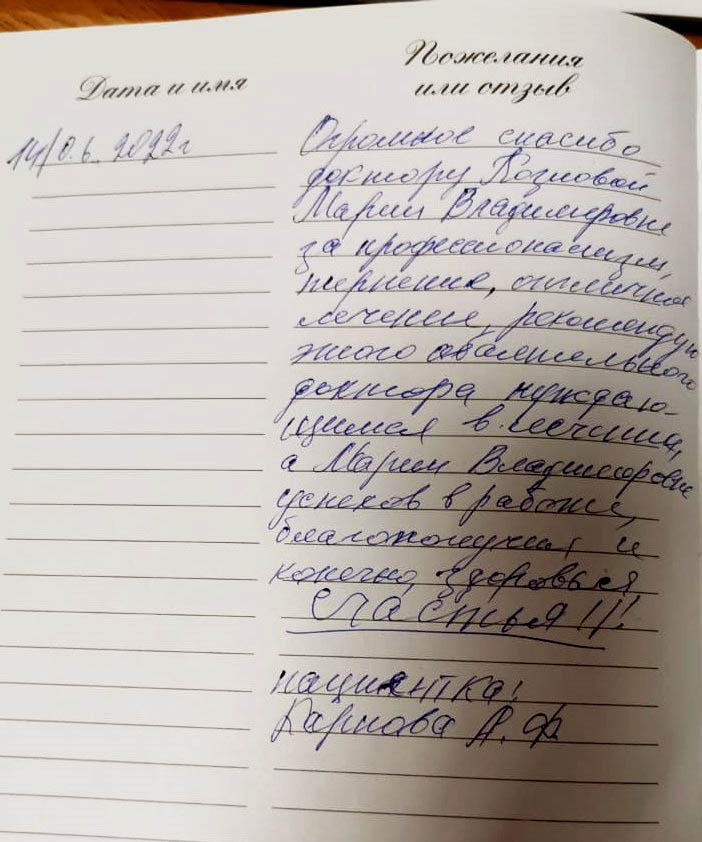 Дата и имя
Пожелания
или отзыв
14/0.6. 2022г
Огромное спасибо
доктору Козловой
Марии Владимировне
за профессионализм,
терпение, отличное
лечение, рекомендую
этого обаятельного
доктора нуждаю-
щимся в лечении,
а Марии Владимировне
успехов в работе,
благополучия и
конечно, здоровья,
счастья!!!
пациентка:
Карпова А. Ф